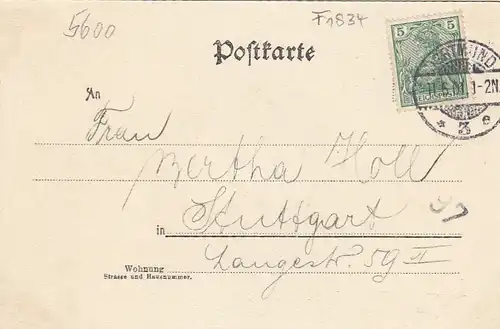 5600
F1834
Postkarte
5
5
An
Frau
Bertha Holl
in Stuttgart
Langestr. 59 II
Wohnung
Strasse und Hausnummer.